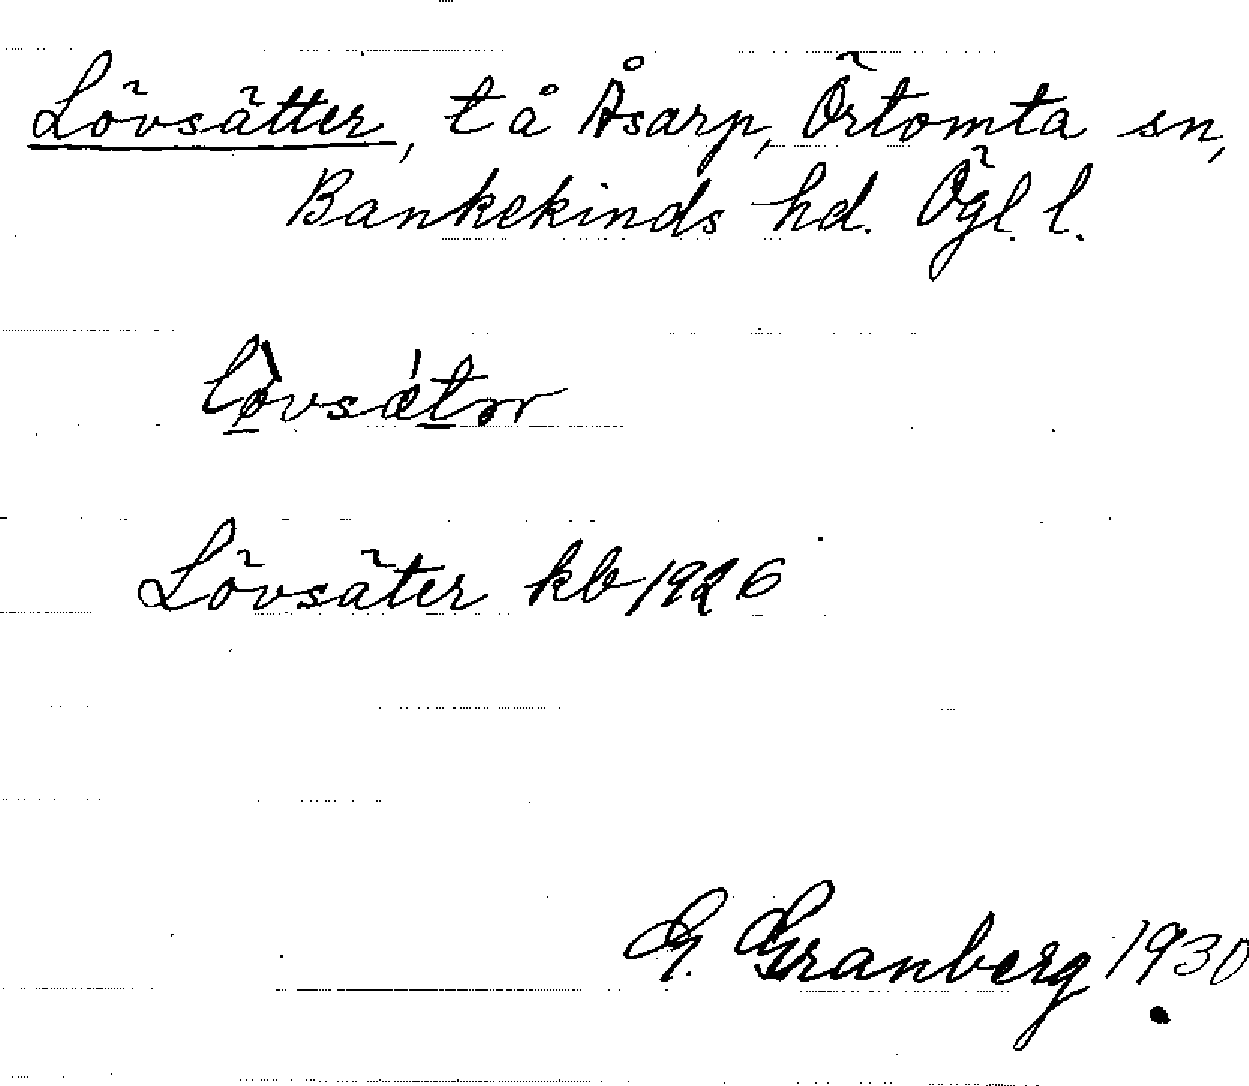 Lövsätter, t å Åsarp, Örtomta sn,
Bankekinds hd. Ögl. l.
Lövsäter kb 1926
G. Granberg 1930